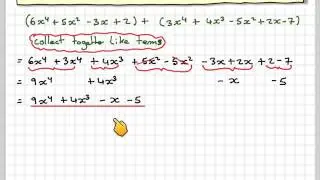 (6x⁴+5x² -3x+2) + (3x⁴ + 4x³ -5x²+2x-7)
collect together like terms
= 6x⁴+3x⁴ + 4x³ + 5x² -5x² -3x+2x +2-7
= 9x⁴ +4x³ -x -5
= 9x⁴ +4x³ -x -5